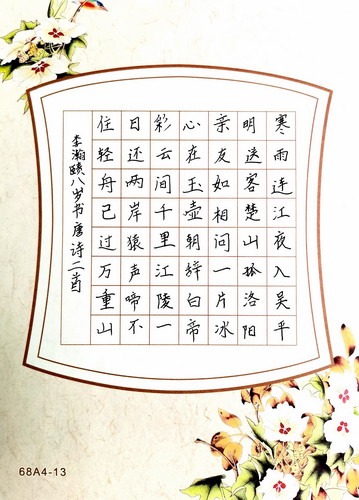 寒雨连江夜入吴平
明送客楚山孤洛阳
亲友如相问一片冰
心在玉壶朝辞白帝
彩云间千里江陵一
日还两岸猿声啼不
住轻舟已过万重山
李瀚赜八岁书唐诗二首
68A4-13